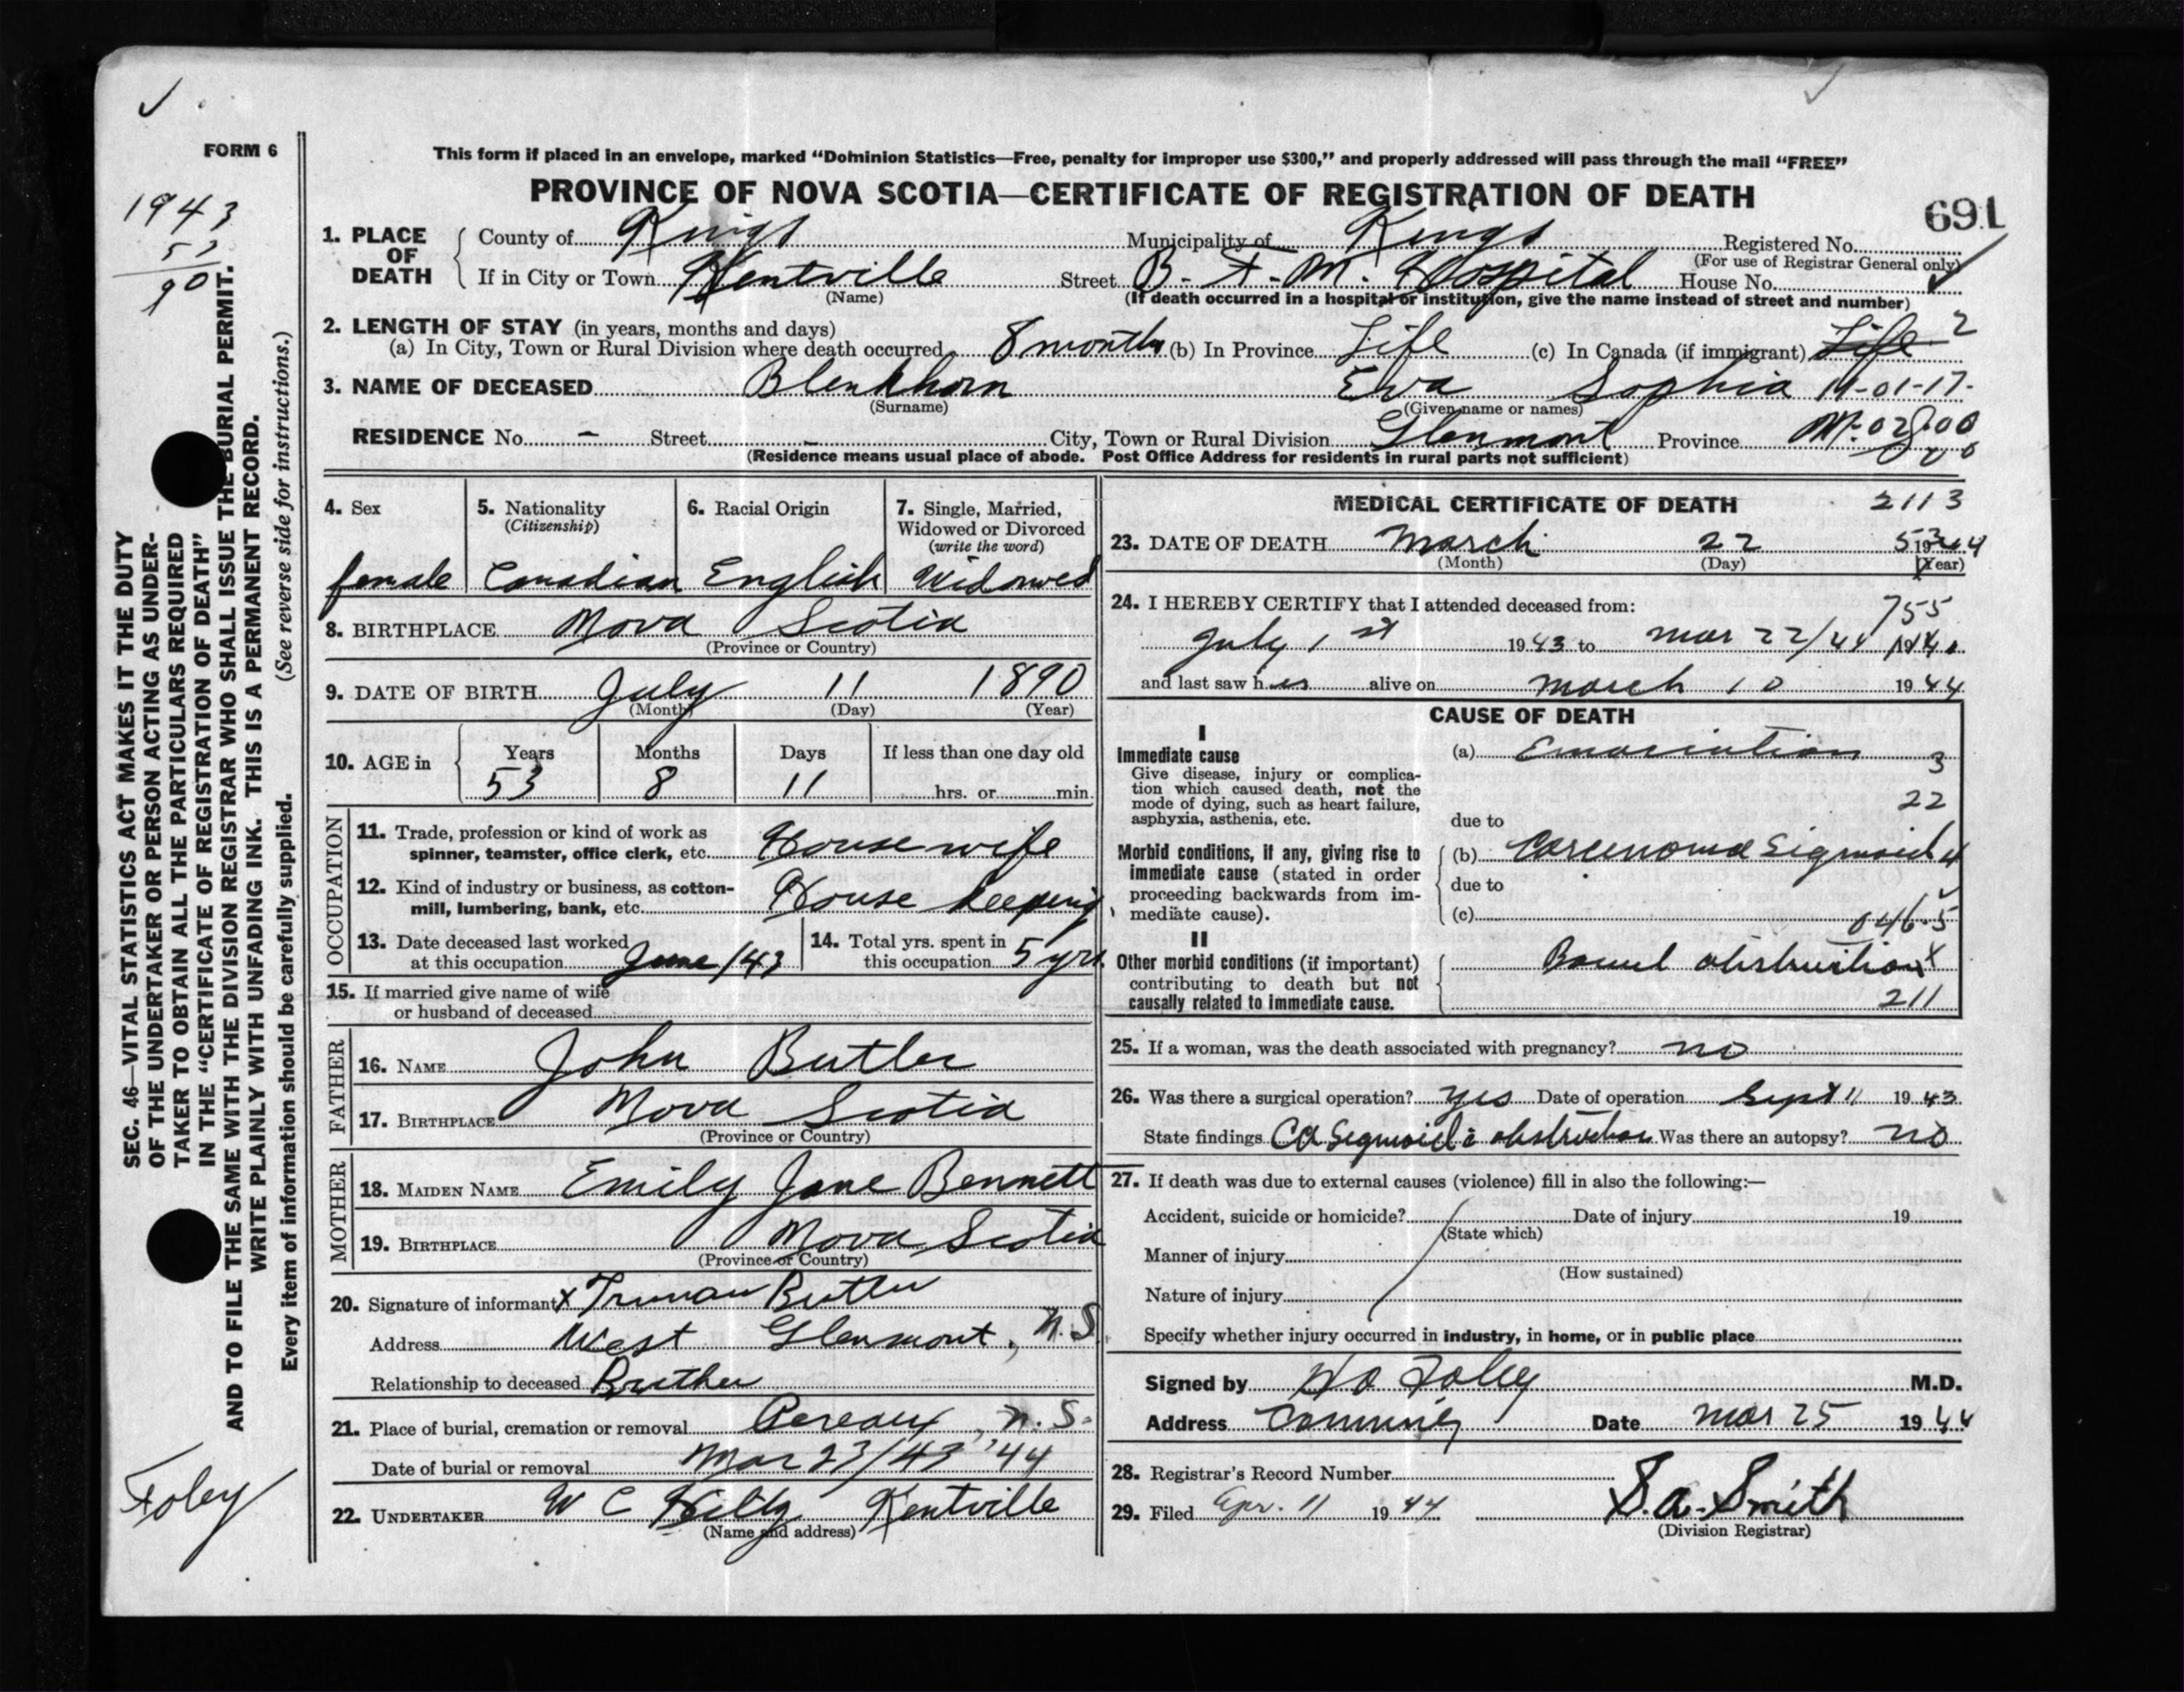 FORM 6
This form if placed in an envelope, marked “Dominion Statistics—Free, penalty for improper use $300,” and properly addressed will pass through the mail “FREE”
PROVINCE OF NOVA SCOTIA—CERTIFICATE OF REGISTRATION OF DEATH
691
1943
53
90
1. PLACE OF DEATH
County of Kings Municipality of Kings Registered No.
(For use of Registrar General only)
If in City or Town Kentville Street B. F. M. Hospital House No.
(Name) (If death occurred in a hospital or institution, give the name instead of street and number)
2. LENGTH OF STAY (in years, months and days)
(a) In City, Town or Rural Division where death occurred 8 months (b) In Province Life (c) In Canada (if immigrant) Life 2
3. NAME OF DECEASED Blenkhorn Eva Sophia 19-01-17-
(Surname) (Given name or names)
RESIDENCE No. – Street – City, Town or Rural Division Glenmont Province
(Residence means usual place of abode. Post Office Address for residents in rural parts not sufficient)
4. Sex 5. Nationality (Citizenship) 6. Racial Origin 7. Single, Married, Widowed or Divorced (write the word)
female Canadian English Widowed
8. BIRTHPLACE Nova Scotia
(Province or Country)
9. DATE OF BIRTH July 11 1890
(Month) (Day) (Year)
10. AGE in Years Months Days If less than one day old
53 8 11 hrs. or min.
OCCUPATION
11. Trade, profession or kind of work as spinner, teamster, office clerk, etc. Housewife
12. Kind of industry or business, as cotton-mill, lumbering, bank, etc. House keeping
13. Date deceased last worked at this occupation June/43
14. Total yrs. spent in this occupation 5 yrs.
15. If married give name of wife
or husband of deceased
FATHER
16. NAME John Butler
17. BIRTHPLACE Nova Scotia
(Province or Country)
MOTHER
18. MAIDEN NAME Emily Jane Bennett
19. BIRTHPLACE Nova Scotia
(Province or Country)
20. Signature of informant X Truman Butler
Address West Glenmont, N.S.
Relationship to deceased Brother
21. Place of burial, cremation or removal Pereaux, N.S.
Date of burial or removal Mar 23/43 '44
22. UNDERTAKER W C Hiltz Kentville
(Name and address)
MEDICAL CERTIFICATE OF DEATH 2113
23. DATE OF DEATH March 22 1944
(Month) (Day) (Year)
24. I HEREBY CERTIFY that I attended deceased from:
755
July 1st 1943 to Mar 22/44 194
and last saw her alive on March 10 1944
CAUSE OF DEATH
I
Immediate cause (a) Emaciation 3
Give disease, injury or complica-
tion which caused death, not the
mode of dying, such as heart failure,
asphyxia, asthenia, etc.
22
due to
Morbid conditions, if any, giving rise to (b) Carcinoma Sigmoid 4
immediate cause (stated in order
proceeding backwards from im-
mediate cause).
due to
(c) 046.5
II
Other morbid conditions (if important) Bowel obstruction X
contributing to death but not
causally related to immediate cause.
211
25. If a woman, was the death associated with pregnancy? no
26. Was there a surgical operation? yes Date of operation Sept 11 1943
State findings Ca Sigmoid c obstruction Was there an autopsy? no
27. If death was due to external causes (violence) fill in also the following:—
Accident, suicide or homicide? Date of injury 19
(State which)
Manner of injury
(How sustained)
Nature of injury
Specify whether injury occurred in industry, in home, or in public place
Signed by Foley M.D.
Address Canning Date Mar 25 1944
28. Registrar's Record Number
29. Filed Apr. 11 1944 S. A. Smith
(Division Registrar)
SEC. 46—VITAL STATISTICS ACT MAKES IT THE DUTY
OF THE UNDERTAKER OR PERSON ACTING AS UNDER-
TAKER TO OBTAIN ALL THE PARTICULARS REQUIRED
IN THE “CERTIFICATE OF REGISTRATION OF DEATH”
AND TO FILE THE SAME WITH THE DIVISION REGISTRAR WHO SHALL ISSUE THE BURIAL PERMIT.
WRITE PLAINLY WITH UNFADING INK. THIS IS A PERMANENT RECORD.
Every item of information should be carefully supplied. (See reverse side for instructions.)
Foley